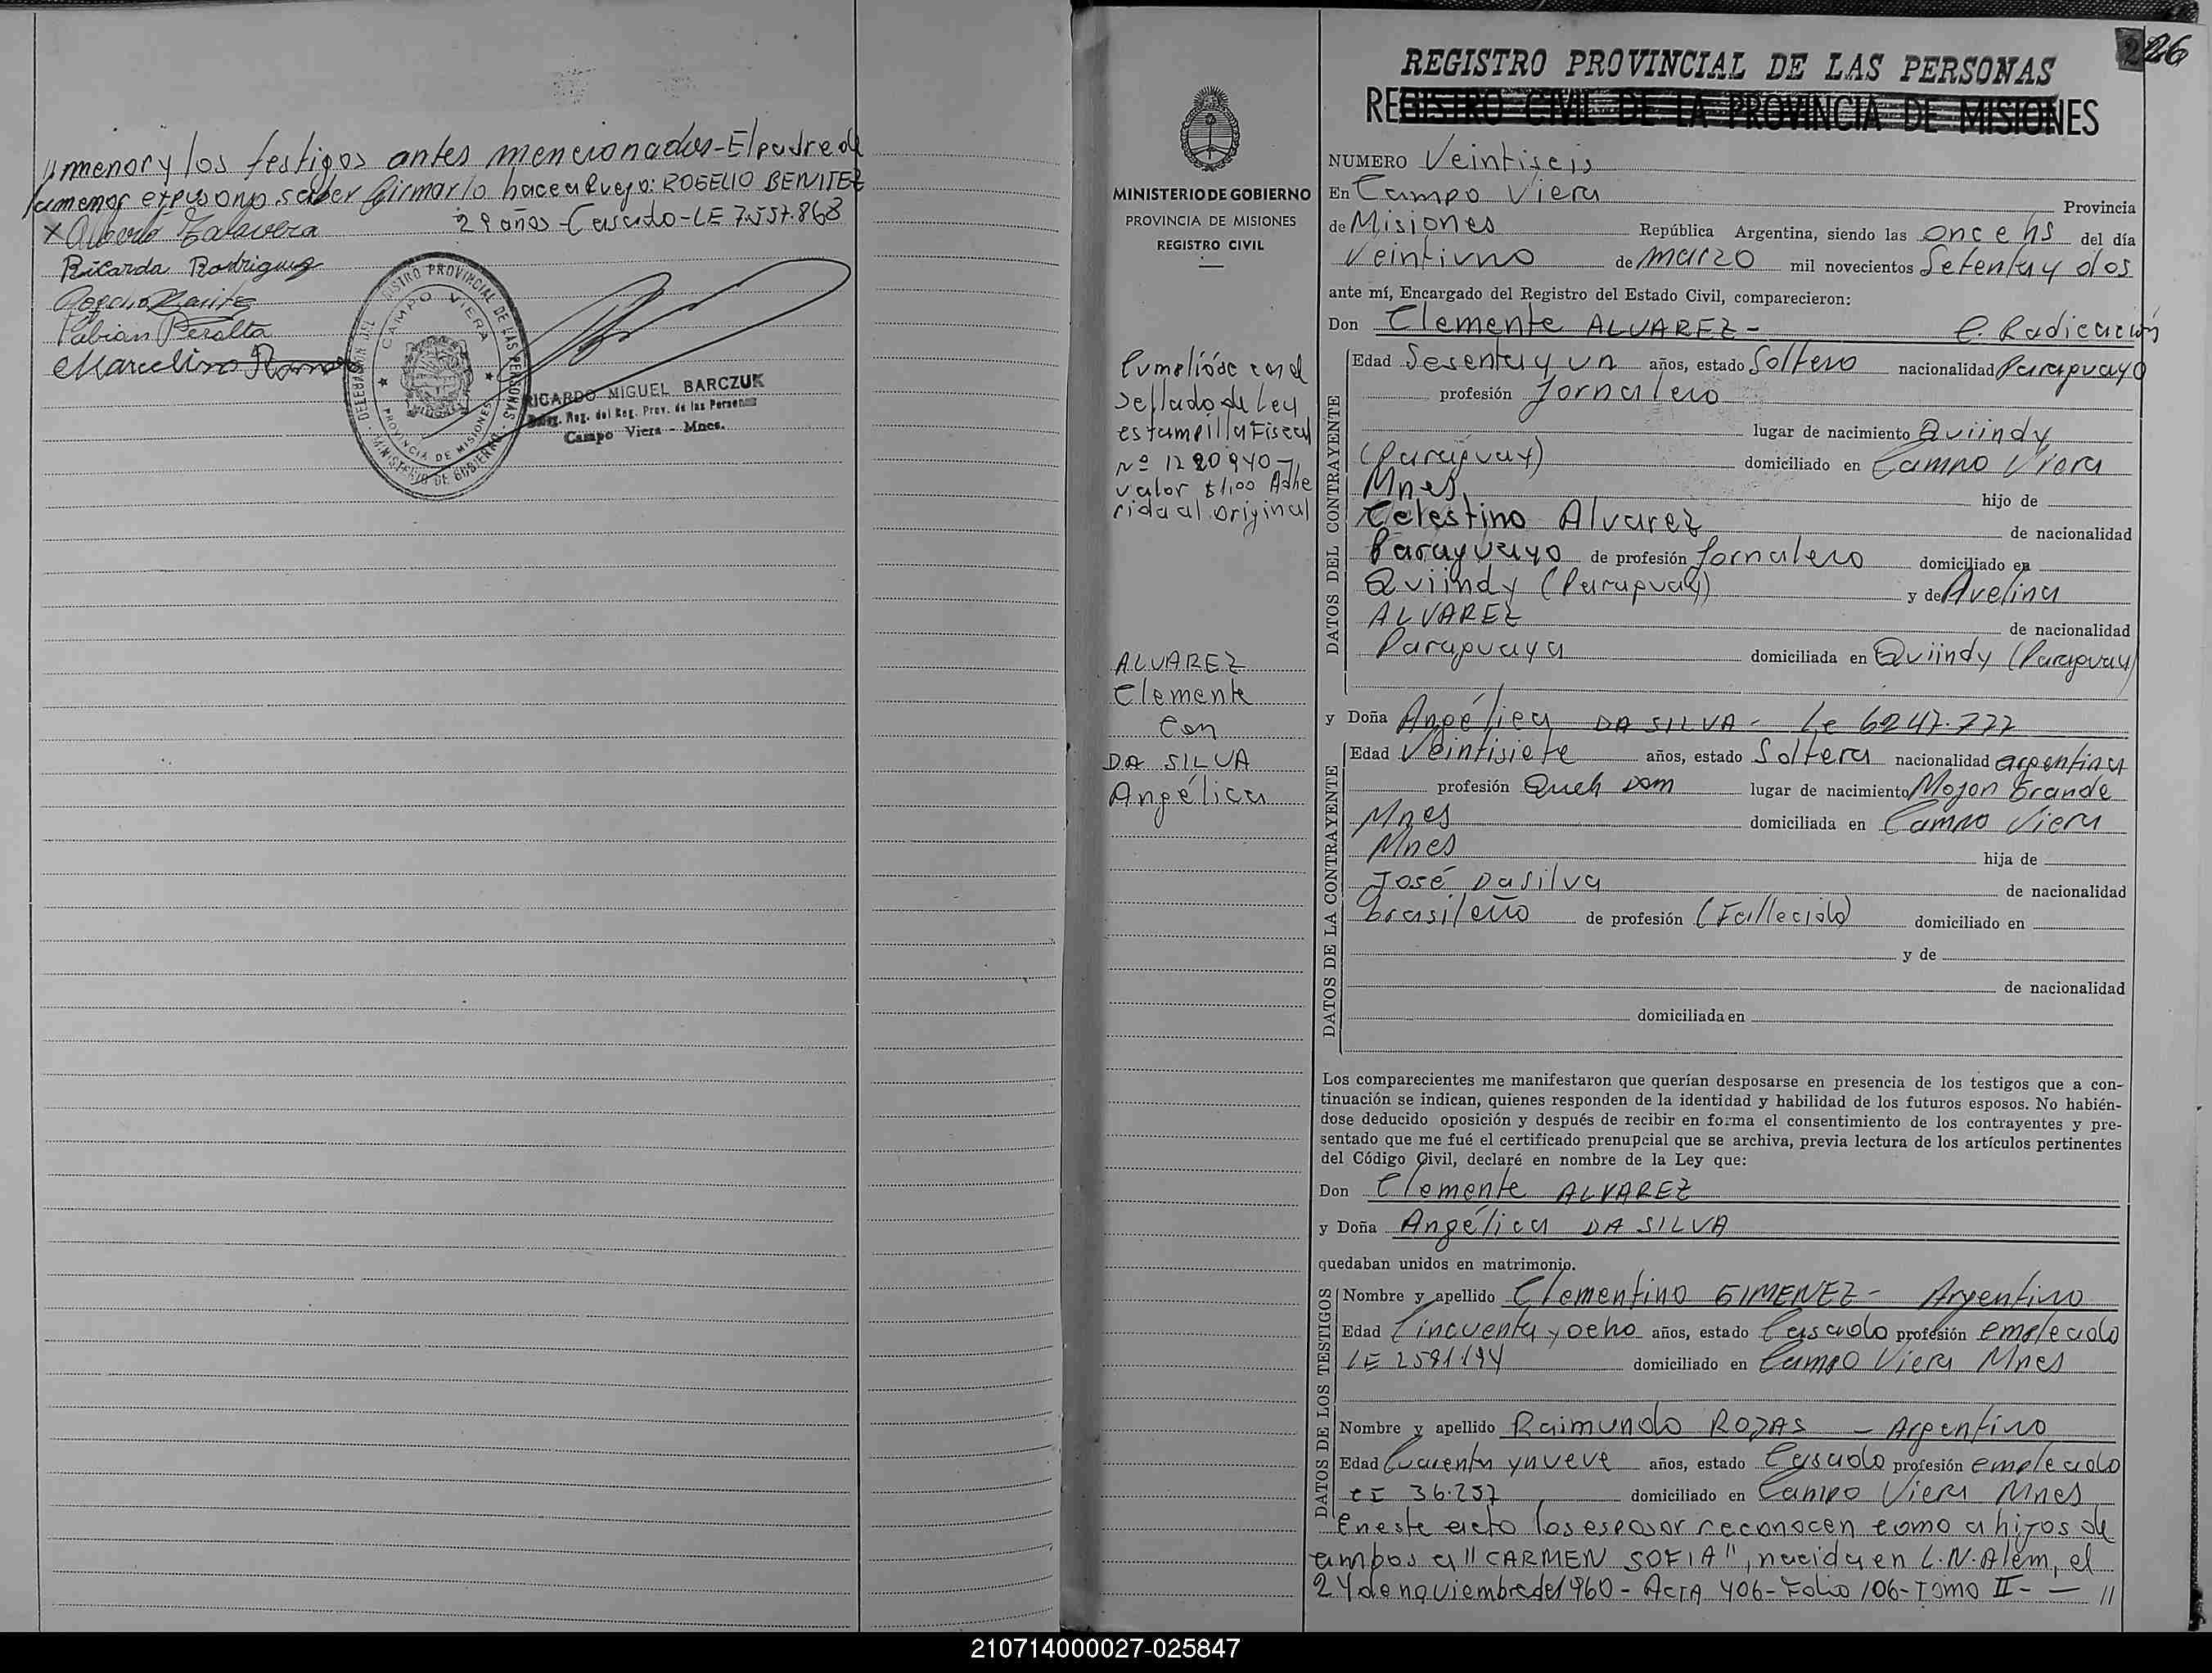 menor y los testigos antes mencionados-El padre de
la menor expuso no saber firmar lo hace a ruego: ROGELIO BENITEZ
29 años-Casado-LE 7.557.868
x Alberto Talavera
Ricarda Rodriguez
Fabian Peralta
Marcelino Ramos
DELEGACION DEL REGISTRO PROVINCIAL DE LAS PERSONAS
MINISTERIO DE GOBIERNO
CAMPO VIERA
PROVINCIA DE MISIONES
RICARDO MIGUEL BARCZUK
Reg. del Reg. Prov. de las Personas
Campo Viera - Mnes.
226
MINISTERIO DE GOBIERNO
PROVINCIA DE MISIONES
REGISTRO CIVIL
Cumplióse con el
sellado de Ley
estampilla Fiscal
Nº 1220940-
valor $1,00 Adhe
rida al original
ALVAREZ
Clemente
Con
DA SILVA
Angélica
REGISTRO PROVINCIAL DE LAS PERSONAS
REGISTRO CIVIL DE LA PROVINCIA DE MISIONES
NUMERO Veintiseis
En Campo Viera Provincia
de Misiones República Argentina, siendo las once hs del día
Veintiuno de marzo mil novecientos Setenta y dos
ante mí, Encargado del Registro del Estado Civil, comparecieron:
Don Clemente ALVAREZ- C. Radicación
DATOS DEL CONTRAYENTE
Edad Sesenta y un años, estado Soltero nacionalidad Paraguayo
profesión Jornalero
lugar de nacimiento Quiindy
(Paraguay) domiciliado en Campo Viera
Mnes hijo de
Celestino Alvarez de nacionalidad
Paraguayo de profesión Jornalero domiciliado en
Quiindy (Paraguay) y de Avelina
ALVAREZ de nacionalidad
Paraguaya domiciliada en Quiindy (Paraguay)
y Doña Angélica DA SILVA- Le 6247.777
DATOS DE LA CONTRAYENTE
Edad Veintisiete años, estado Soltera nacionalidad argentina
profesión Queh Dom lugar de nacimiento Mojon Grande
Mnes domiciliada en Campo Viera
Mnes hija de
José DaSilva de nacionalidad
brasileño de profesión (Fallecido) domiciliado en
y de
de nacionalidad
domiciliada en
Los comparecientes me manifestaron que querían desposarse en presencia de los testigos que a con-
tinuación se indican, quienes responden de la identidad y habilidad de los futuros esposos. No habién-
dose deducido oposición y después de recibir en forma el consentimiento de los contrayentes y pre-
sentado que me fué el certificado prenupcial que se archiva, previa lectura de los artículos pertinentes
del Código Civil, declaré en nombre de la Ley que:
Don Clemente ALVAREZ
y Doña Angélica DA SILVA
quedaban unidos en matrimonio.
DATOS DE LOS TESTIGOS
Nombre y apellido Clementino GIMENEZ- Argentino
Edad Cincuenta y ocho años, estado Casado profesión empleado
LE 2591194 domiciliado en Campo Viera Mnes
DATOS DE LOS TESTIGOS
Nombre y apellido Raimundo ROJAS - Argentino
Edad Cuarenta y nueve años, estado Casado profesión empleado
CI 36.257 domiciliado en Campo Viera Mnes
En este acto los esposos reconocen como a hijos de
ambos a "CARMEN SOFIA", nacida en L.N. Alem, el
24 de noviembre de 1960-ACTA 406-Folio 106-Tomo II- — //
210714000027-025847